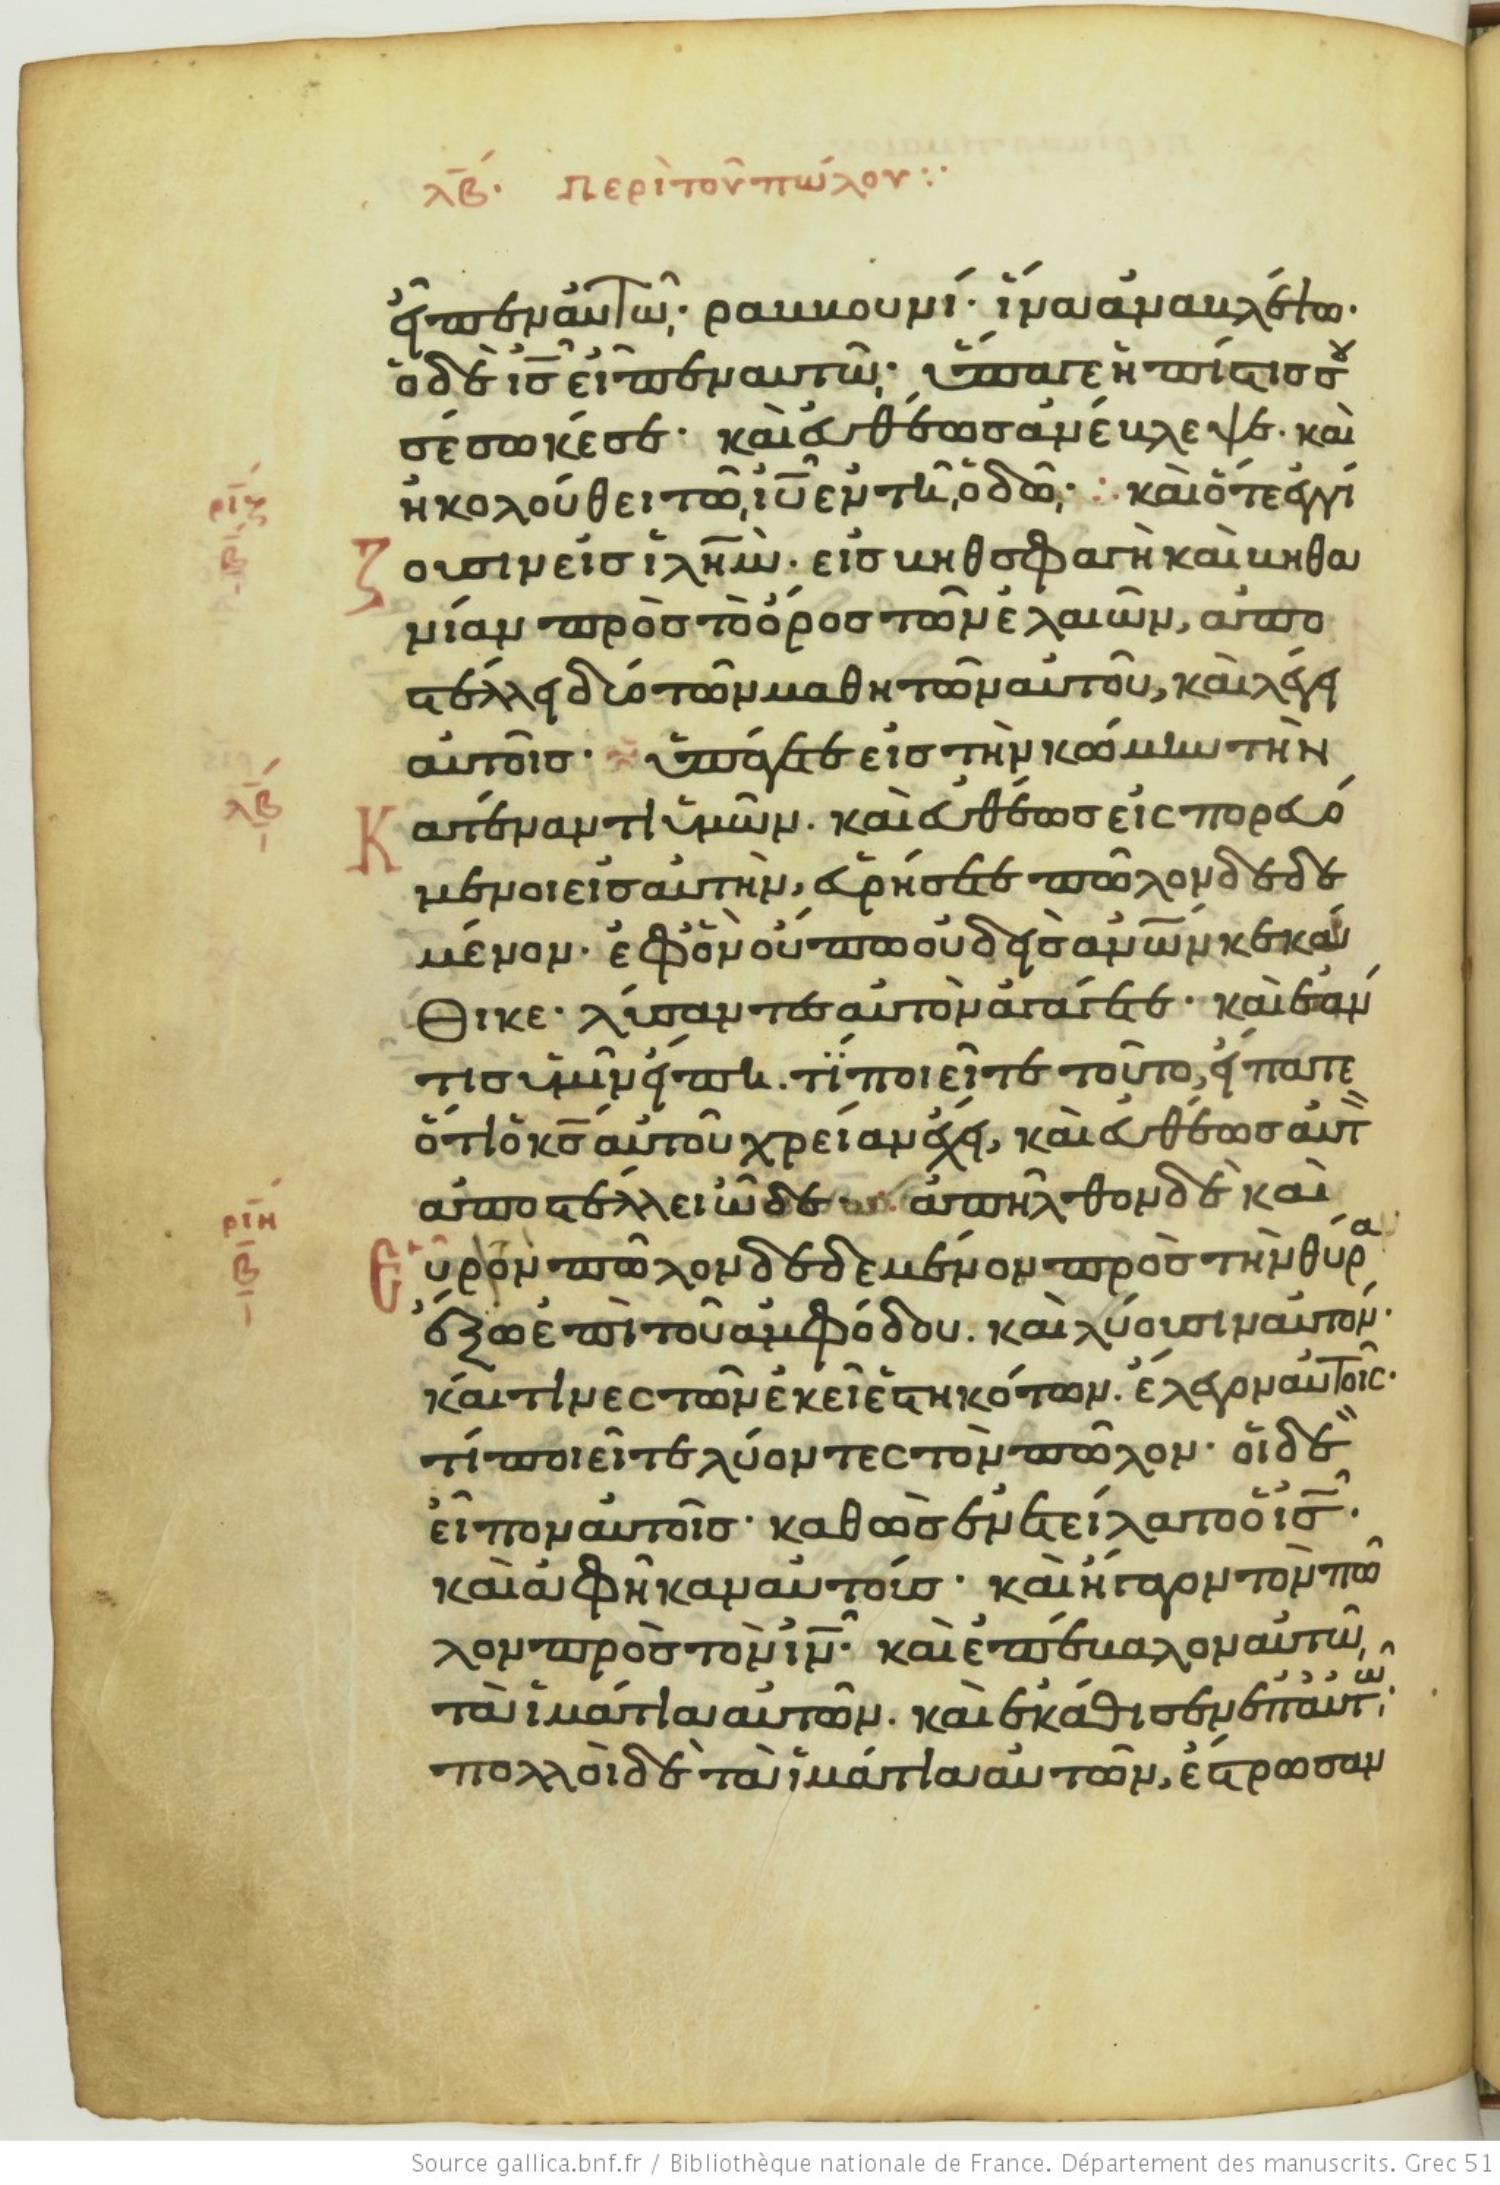 λβ· περὶ τοῦ πώλου:·
εἶπεν αὐτῶ· ραββουνί· ἵνα ἀναβλέψω·
ὁ δὲ ις εἶπεν αυτῶ· ὕπαγε ἡ πίστισ σου
σέσωκέ σε· καὶ εὐθέωσ ἀνέβλεψε· καὶ
ἠκολούθει τῶ ιυ ἐν τῆ ὁδῶ· καὶ ὅτε ἐγγί
ζουσιν εἰσ ἰλημ· εἰσ βηθσφαγὴ καὶ βηθα
νίαν πρὸσ τὸ ὄροσ τῶν ἐλαιῶν, ἀπο
στέλλει δύο τῶν μαθητῶν αὐτοῦ, καὶ λέγει
αὐτοῖσ· ὑπάγετε εἰσ τὴν κώμην τὴν
κατέναντι ὑμῶν· καὶ εὐθέωσ εἰσπορευό
μενοι εἰσ αὐτὴν, εὑρήσετε πῶλον δεδε
μένον· ἐφ ὃν οὔπω οὐδεὶσ ἀνων κεκά
θικε· λύσαντεσ αὐτὸν ἀγάγετε· καὶ ἐάν
τισ ὑμῖν εἴπη· τί ποιεῖτε τοῦτο, εἴπατε
ὅτι ὁ κς αὐτοῦ χρείαν ἔχει, καὶ εὐθέωσ αὐτ
ἀποστέλλει ὧδε· ἀπῆλθον δὲ καὶ
εὗρον πῶλον δεδεμένον πρὸσ τὴν θύρα
ἔξω ἐπὶ τοῦ ἀμφόδου· καὶ λύουσιν αὐτον·
καί τινεσ τῶν ἐκεῖ ἑστηκότων· ἔλεγον αὐτοῖσ·
τί ποιεῖτε λύοντεσ τὸν πῶλον· οἱ δὲ
εἶπον αὐτοῖσ· καθὼσ ἐνετείλατο ὁ ισ·
καὶ ἀφῆκαν αὐτούσ· καὶ ἤγαγον τὸν πῶ
λον πρὸσ τὸν ιν· καὶ ἐπέβαλον αὐτῶ
τὰ ἱμάτια αὐτῶν· καὶ ἐκάθισεν ἐπ αὐτῶ·
πολλοὶ δὲ τὰ ἱμάτια αὐτῶν, ἔστρωσαν
ριζ
β
λβ
ριη
β
Source gallica.bnf.fr / Bibliothèque nationale de France. Département des manuscrits. Grec 51